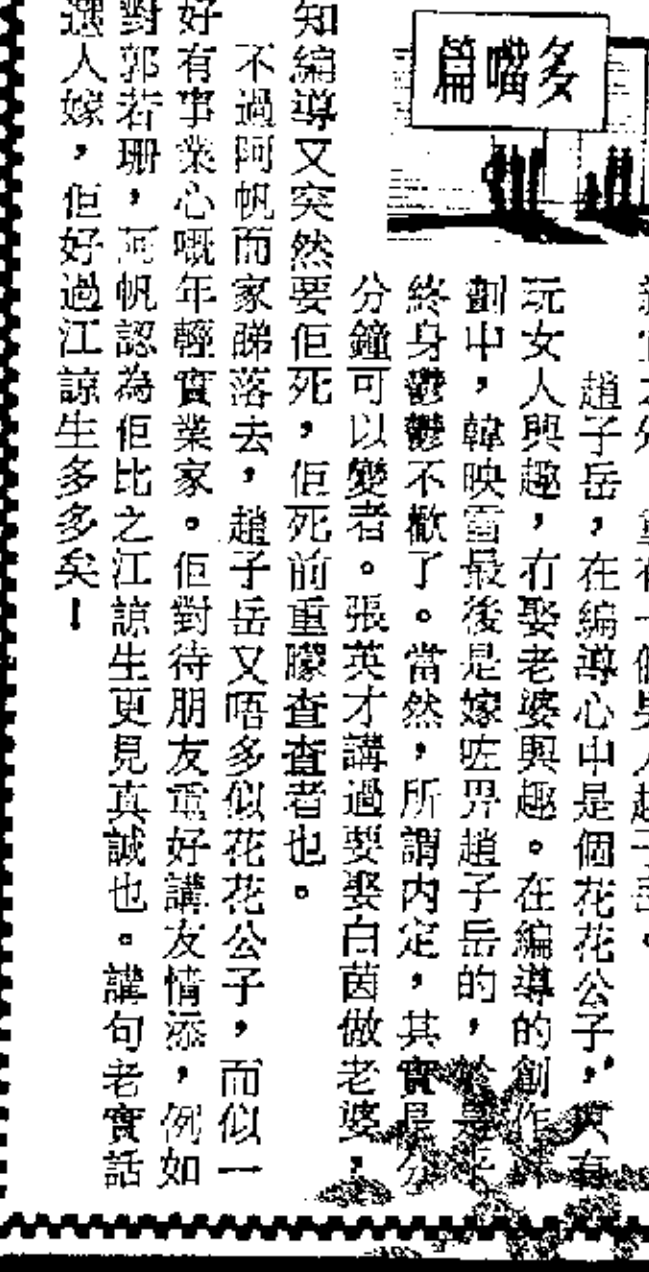 多嘴篇
重有一個男人趙子岳。
趙子岳,在編導心中是個花花公子,只有
玩女人興趣,冇娶老婆興趣。在編導的創作
劃中,韓映雪最後是嫁咗畀趙子岳的,於是
終身鬱鬱不歡了。當然,所謂內定,其實是分
分鐘可以變者。張英才講過要娶白茵做老婆,
知編導又突然要佢死,佢死前重矇查查者也。
不過阿帆而家睇落去,趙子岳又唔多似花花公子,而似一
好有事業心嘅年輕實業家。佢對待朋友重好講友情添,例如
對郭若珊,阿帆認為佢比之江諒生更見真誠也。講句老實話
選人嫁,佢好過江諒生多多矣!